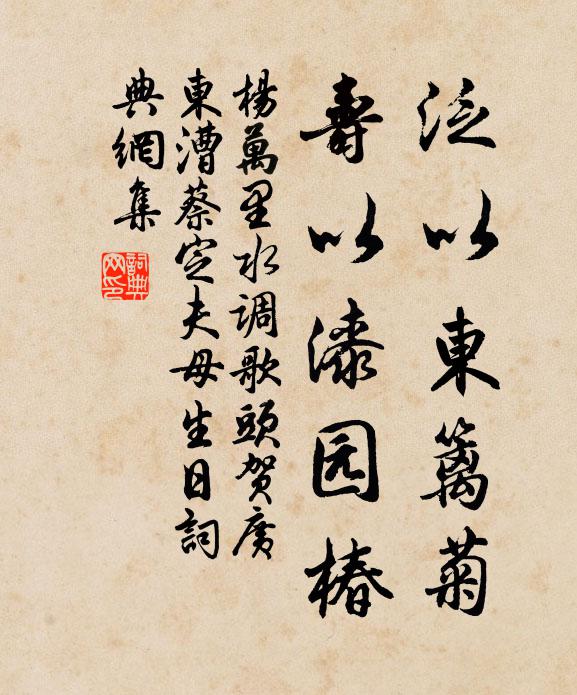 泛以東籬菊
壽以漆园椿
楊萬里水调歌頭贺廣
東漕蔡定夫母生日詞
典網集
詞典网印